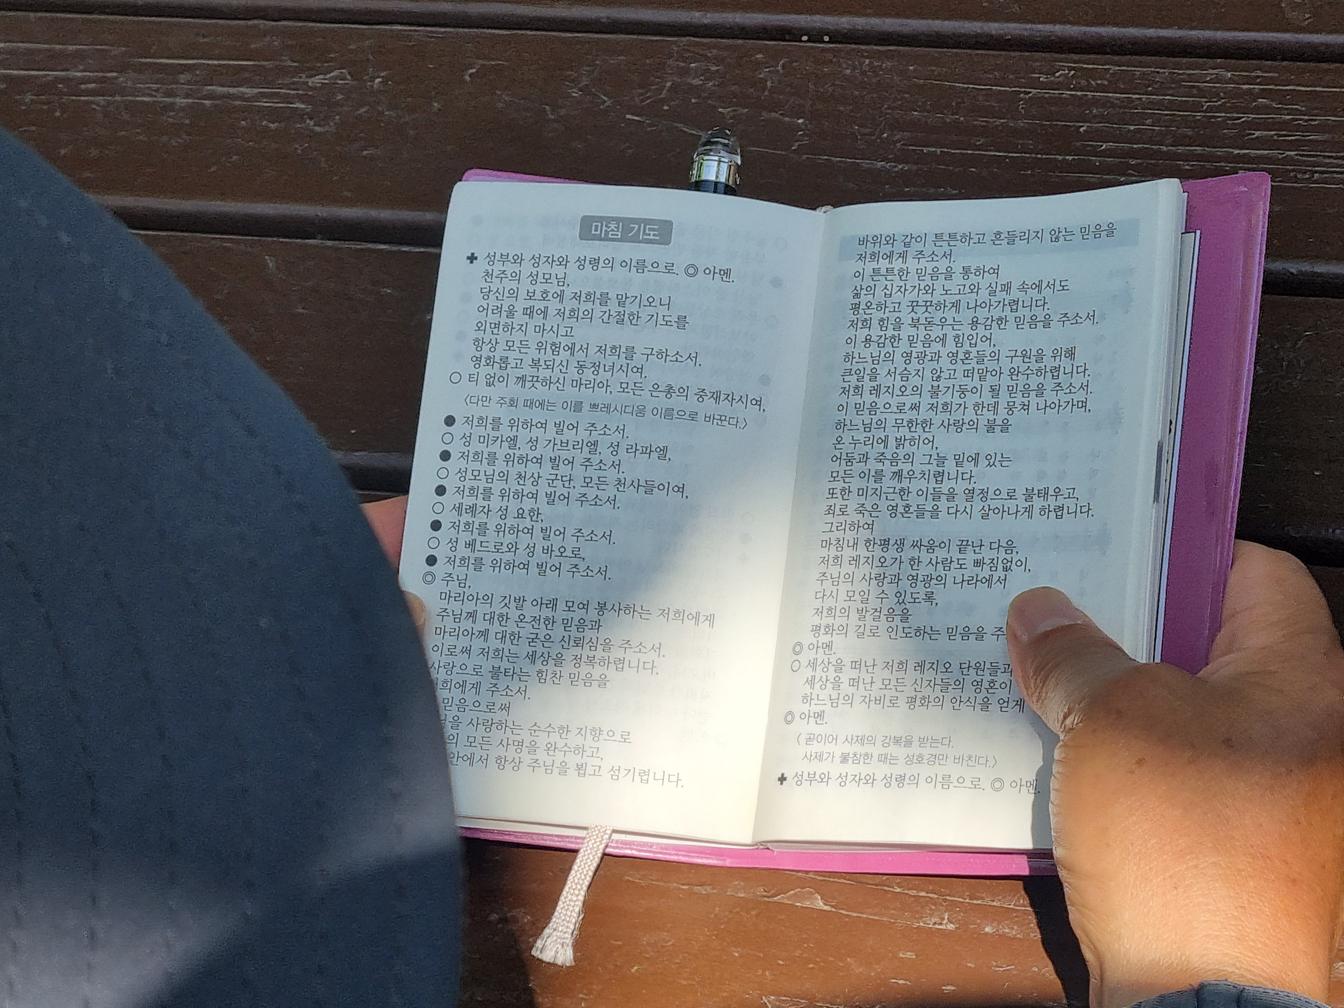 마침 기도
✚ 성부와 성자와 성령의 이름으로. ◎ 아멘.
천주의 성모님,
당신의 보호에 저희를 맡기오니
어려울 때에 저희의 간절한 기도를
외면하지 마시고
항상 모든 위험에서 저희를 구하소서.
영화롭고 복되신 동정녀시여,
○ 티 없이 깨끗하신 마리아, 모든 은총의 중재자시여,
〈다만 주회 때에는 이를 쁘레시디움 이름으로 바꾼다.〉
● 저희를 위하여 빌어 주소서.
○ 성 미카엘, 성 가브리엘, 성 라파엘,
● 저희를 위하여 빌어 주소서.
○ 성모님의 천상 군단, 모든 천사들이여,
● 저희를 위하여 빌어 주소서.
○ 세례자 성 요한,
● 저희를 위하여 빌어 주소서.
○ 성 베드로와 성 바오로,
● 저희를 위하여 빌어 주소서.
◎ 주님,
마리아의 깃발 아래 모여 봉사하는 저희에게
주님께 대한 온전한 믿음과
마리아께 대한 굳은 신뢰심을 주소서.
이로써 저희는 세상을 정복하렵니다.
사랑으로 불타는 힘찬 믿음을
희에게 주소서.
믿음으로써
을 사랑하는 순수한 지향으로
의 모든 사명을 완수하고,
안에서 항상 주님을 뵙고 섬기렵니다.
바위와 같이 튼튼하고 흔들리지 않는 믿음을
저희에게 주소서.
이 튼튼한 믿음을 통하여
삶의 십자가와 노고와 실패 속에서도
평온하고 꿋꿋하게 나아가렵니다.
저희 힘을 북돋우는 용감한 믿음을 주소서.
이 용감한 믿음에 힘입어,
하느님의 영광과 영혼들의 구원을 위해
큰일을 서슴지 않고 떠맡아 완수하렵니다.
저희 레지오의 불기둥이 될 믿음을 주소서.
이 믿음으로써 저희가 한데 뭉쳐 나아가며,
하느님의 무한한 사랑의 불을
온 누리에 밝히어,
어둠과 죽음의 그늘 밑에 있는
모든 이를 깨우치렵니다.
또한 미지근한 이들을 열정으로 불태우고,
죄로 죽은 영혼들을 다시 살아나게 하렵니다.
그리하여
마침내 한평생 싸움이 끝난 다음,
저희 레지오가 한 사람도 빠짐없이,
주님의 사랑과 영광의 나라에서
다시 모일 수 있도록,
저희의 발걸음을
평화의 길로 인도하는 믿음을 주
◎ 아멘.
○ 세상을 떠난 저희 레지오 단원들과
세상을 떠난 모든 신자들의 영혼이
하느님의 자비로 평화의 안식을 얻게
◎ 아멘.
〈곧이어 사제의 강복을 받는다.
사제가 불참한 때는 성호경만 바친다.〉
✚ 성부와 성자와 성령의 이름으로. ◎ 아멘.